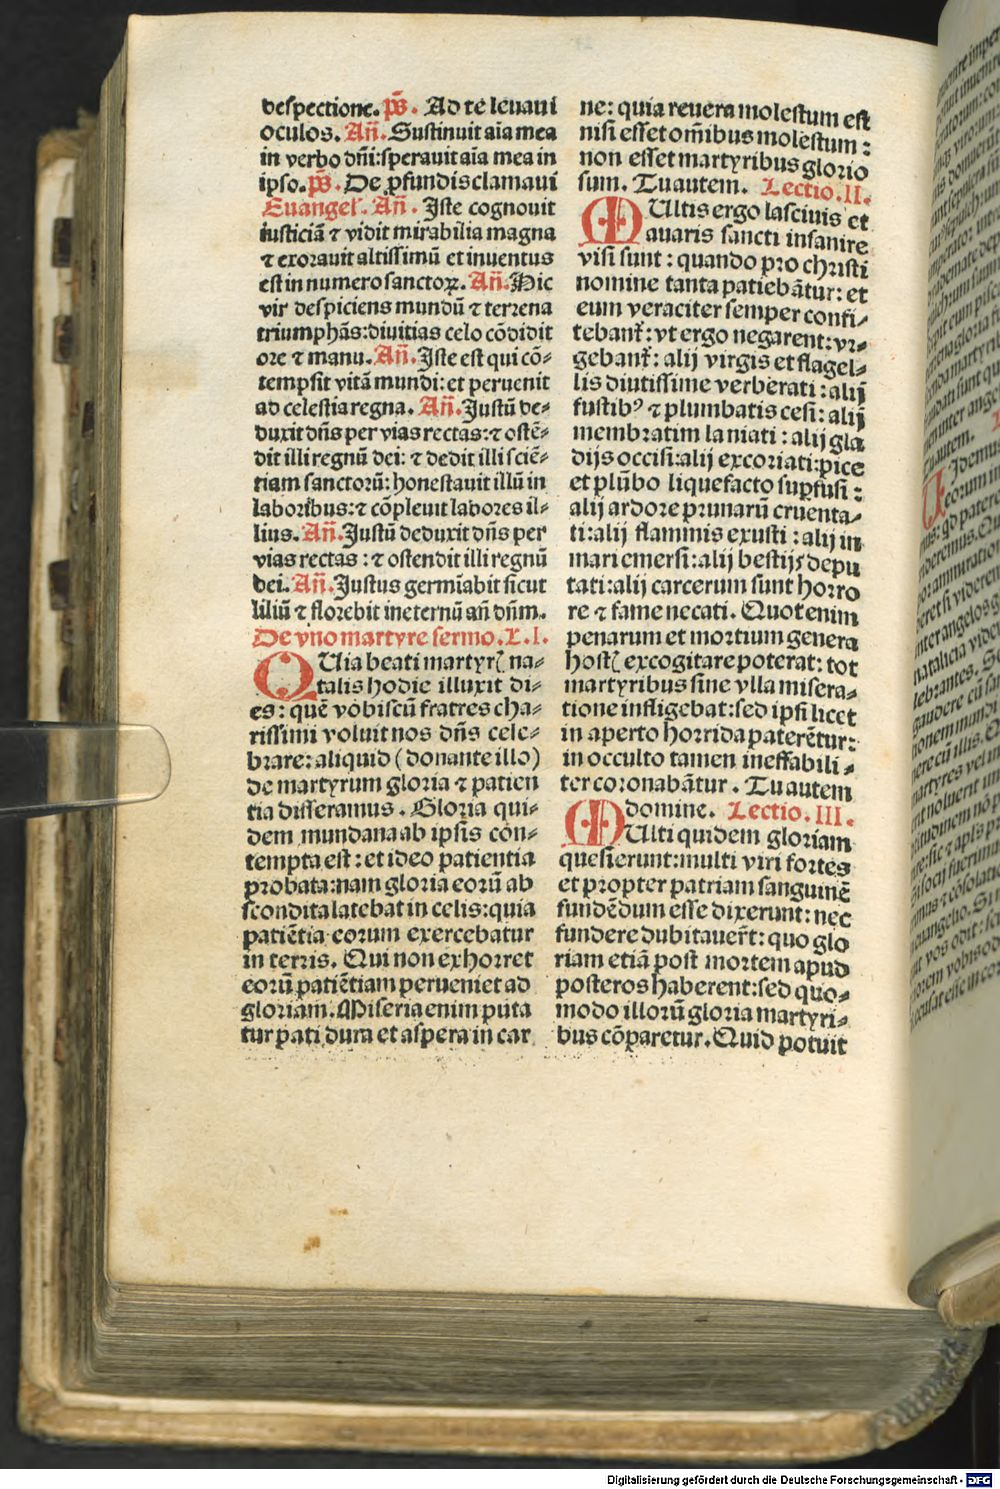 despectione. p̄s. Ad te leuaui
oculos. Añ. Sustinuit aīa mea
in verbo dñi: sperauit aīa mea in
ipso. p̄s. De ꝓfundis clamaui
Euangel'. Añ. Iste cognouit
iusticiā ⁊ vidit mirabilia magna
⁊ exorauit altissimū et inuentus
est in numero sanctoꝝ. Añ. Hic
vir despiciens mundū ⁊ terrena
triumphās: diuitias celo cōdidit
ore ⁊ manu. Añ. Iste est qui cō⸗
tempsit vitā mundi: et peruenit
ad celestia regna. Añ. Justū de⸗
duxit dñs per vias rectas: ⁊ ostē⸗
dit illi regnū dei: ⁊ dedit illi sciē⸗
tiam sanctorū: honestauit illū in
laboribus: ⁊ cōpleuit labores il⸗
lius. Añ. Justū deduxit dñs per
vias rectas: ⁊ ostendit illi regnū
dei. Añ. Justus germīabit sicut
liliū ⁊ florebit in eternū añ dñm.
De vno martyre sermo. L. I.
QUia beati martyrꝭ na⸗
talis hodie illuxit di⸗
es: quē vobiscū fratres cha⸗
rissimi voluit nos dñs cele⸗
brare: aliquid (donante illo)
de martyrum gloria ⁊ patien
tia disseramus. Gloria qui⸗
dem mundana ab ipsis con⸗
tempta est: et ideo patientia
probata: nam gloria eorū ab
scondita latebat in celis: quia
patiētia eorum exercebatur
in terris. Qui non exhorret
eorū patiētiam perueniet ad
gloriam. Miseria enim puta
tur pati dura et aspera in car
ne: quia reuera molestum est
nisi esset om̄ibus molestum:
non esset martyribus glorio
sum. Tu autem. Lectio. II.
MUltis ergo lasciuis et
auaris sancti insanire
visi sunt: quando pro christi
nomine tanta patiebātur: et
eum veraciter semper confi⸗
tebant᷑: vt ergo negarent: vr⸗
gebant᷑: alij virgis et flagel⸗
lis diutissime verberati: alij
fustibꝰ ⁊ plumbatis cesi: alij
membratim laniati: alij gla
dijs occisi: alij excoriati: pice
et plūbo liquefacto suꝑfusi:
alij ardore prunarū cruenta⸗
ti: alij flammis exusti: alij in
mari emersi: alij bestijs depu
tati: alij carcerum sunt horro
re ⁊ fame necati. Quot enim
penarum et mortium genera
hostꝭ excogitare poterat: tot
martyribus sine vlla misera⸗
tione infligebat: sed ipsi licet
in aperto horrida paterētur:
in occulto tamen ineffabili⸗
ter coronabātur. Tu autem
domine. Lectio. III.
MUlti quidem gloriam
quesierunt: multi viri fortes
et propter patriam sanguinē
fundēdum esse dixerunt: nec
fundere dubitauer̄t: quo glo
riam etiā post mortem apud
posteros haberent: sed quo⸗
modo illorū gloria martyri⸗
bus cōparetur. Quid potuit
Digitalisierung gefördert durch die Deutsche Forschungsgemeinschaft - DFG